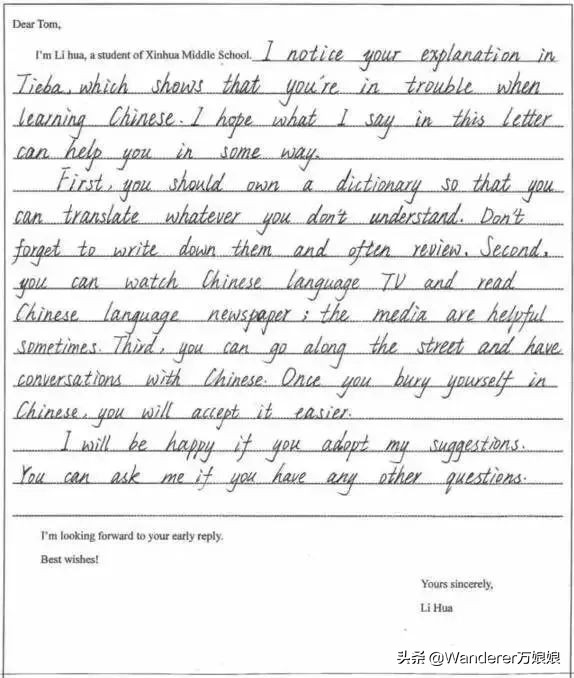 Dear Tom,
I'm Li hua, a student of Xinhua Middle School. I notice your explanation in
Tieba, which shows that you're in trouble when
learning Chinese. I hope what I say in this letter
can help you in some way.
First, you should own a dictionary so that you
can translate whatever you don't understand. Don't
forget to write down them and often review. Second,
you can watch Chinese language TV and read
Chinese language newspaper; the media are helpful
sometimes. Third, you can go along the street and have
conversations with Chinese. Once you bury yourself in
Chinese, you will accept it easier.
I will be happy if you adopt my suggestions.
You can ask me if you have any other questions.
I'm looking forward to your early reply.
Best wishes!
Yours sincerely,
Li Hua
头条 @Wanderer万娘娘